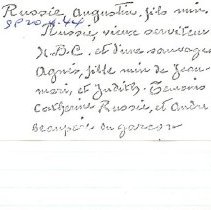 Russie, Augustin, fils min.
SP 20 p. 44
Russie, vieux serviteur
H.B.C. et d'une sauvage
Agnès, fille min de Jean
mari, et Judith. Temoins
Catherine Russie, et Andre
Beaupré du garcon